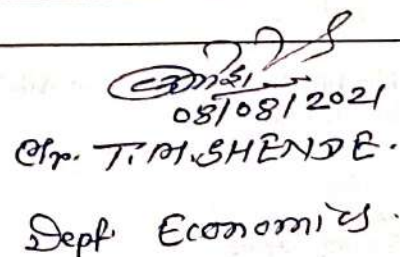 08/08/2021
Mr. T.M.SHENDE.
Dept. Economics.